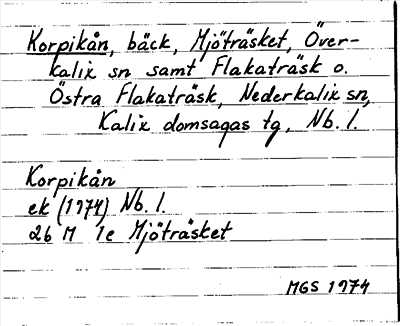 Korpikån, bäck, Mjöträsket, Över-
kalix sn samt Flakaträsk o.
Östra Flakaträsk, Nederkalix sn,
Kalix domsagas tg, Nb. l.
Korpikån
ek (1974) Nb. l.
26 M 1e Mjöträsket
MGS 1974